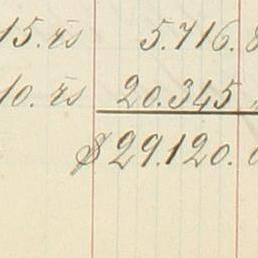 15. rs 5.716.8
10. rs 20.345
$29.120.0